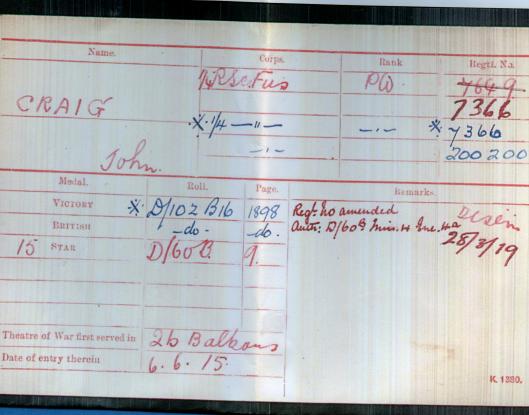 Name. Corps. Rank Regtl. No.
R Sc Fus Pte 7649
CRAIG 7366
※ 1/4 —"— —"— ※ 7366
—"— 200200
John.
Medal. Roll. Page. Remarks.
VICTORY ※ D/102 B16 1898 Regtl. No amended
BRITISH —do— do. Auth: D/60B
15 STAR D/60B. 9. 28/3/19
Theatre of War first served in 2b Balkans
Date of entry therein 6. 6. 15.
K. 1380.